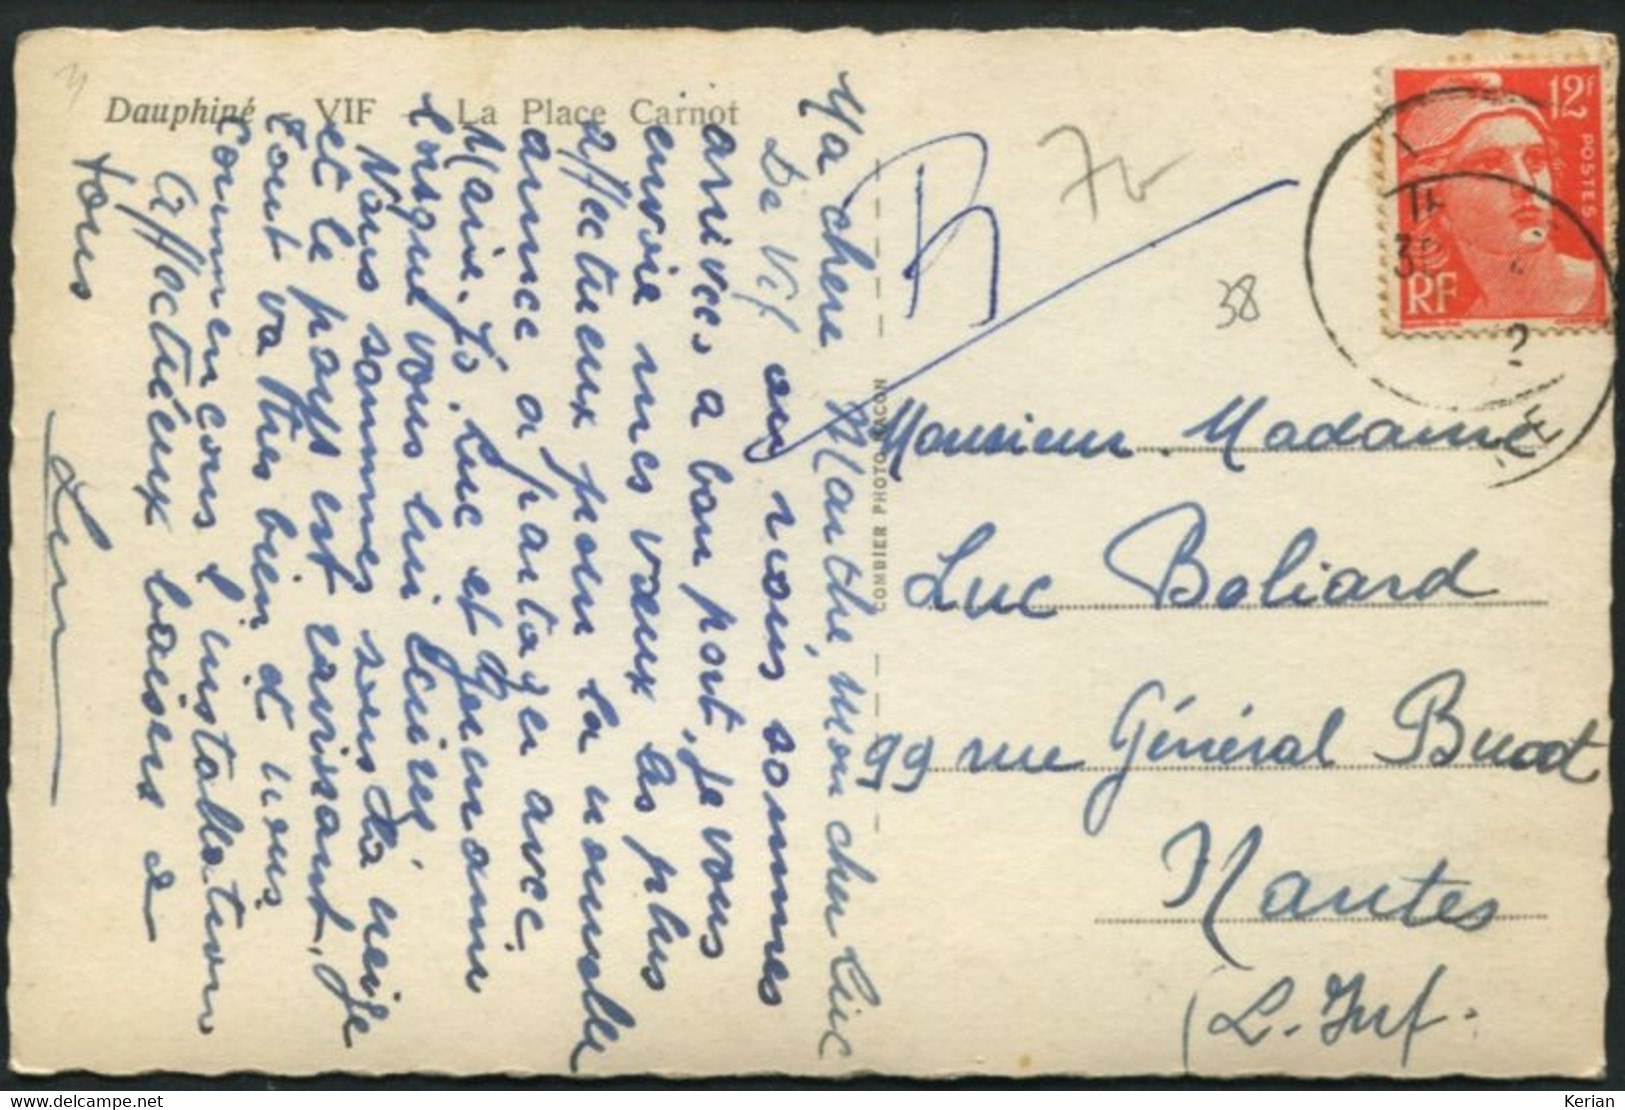 Dauphiné - VIF - La Place Carnot
Ma chère Marthe, mon cher Luc
De Vif où nous sommes
arrivées à bon port, je vous
envoie mes vœux les plus
affectueux pour la nouvelle
année à partager avec
Marie. Jo, Luc et
lorsque vous lui
Nous sommes sous la neige
et le pays est ravissant,
tout va très bien et nous
commençons l'installation
Affectueux baisers à
tous
B
7
38
12f
POSTES
RF
COMBIER PHOTO MACON
Monsieur Madame
Luc Boliard
99 rue Général Buat
Nantes
(L. Inf.
delcampe.net
Kerian